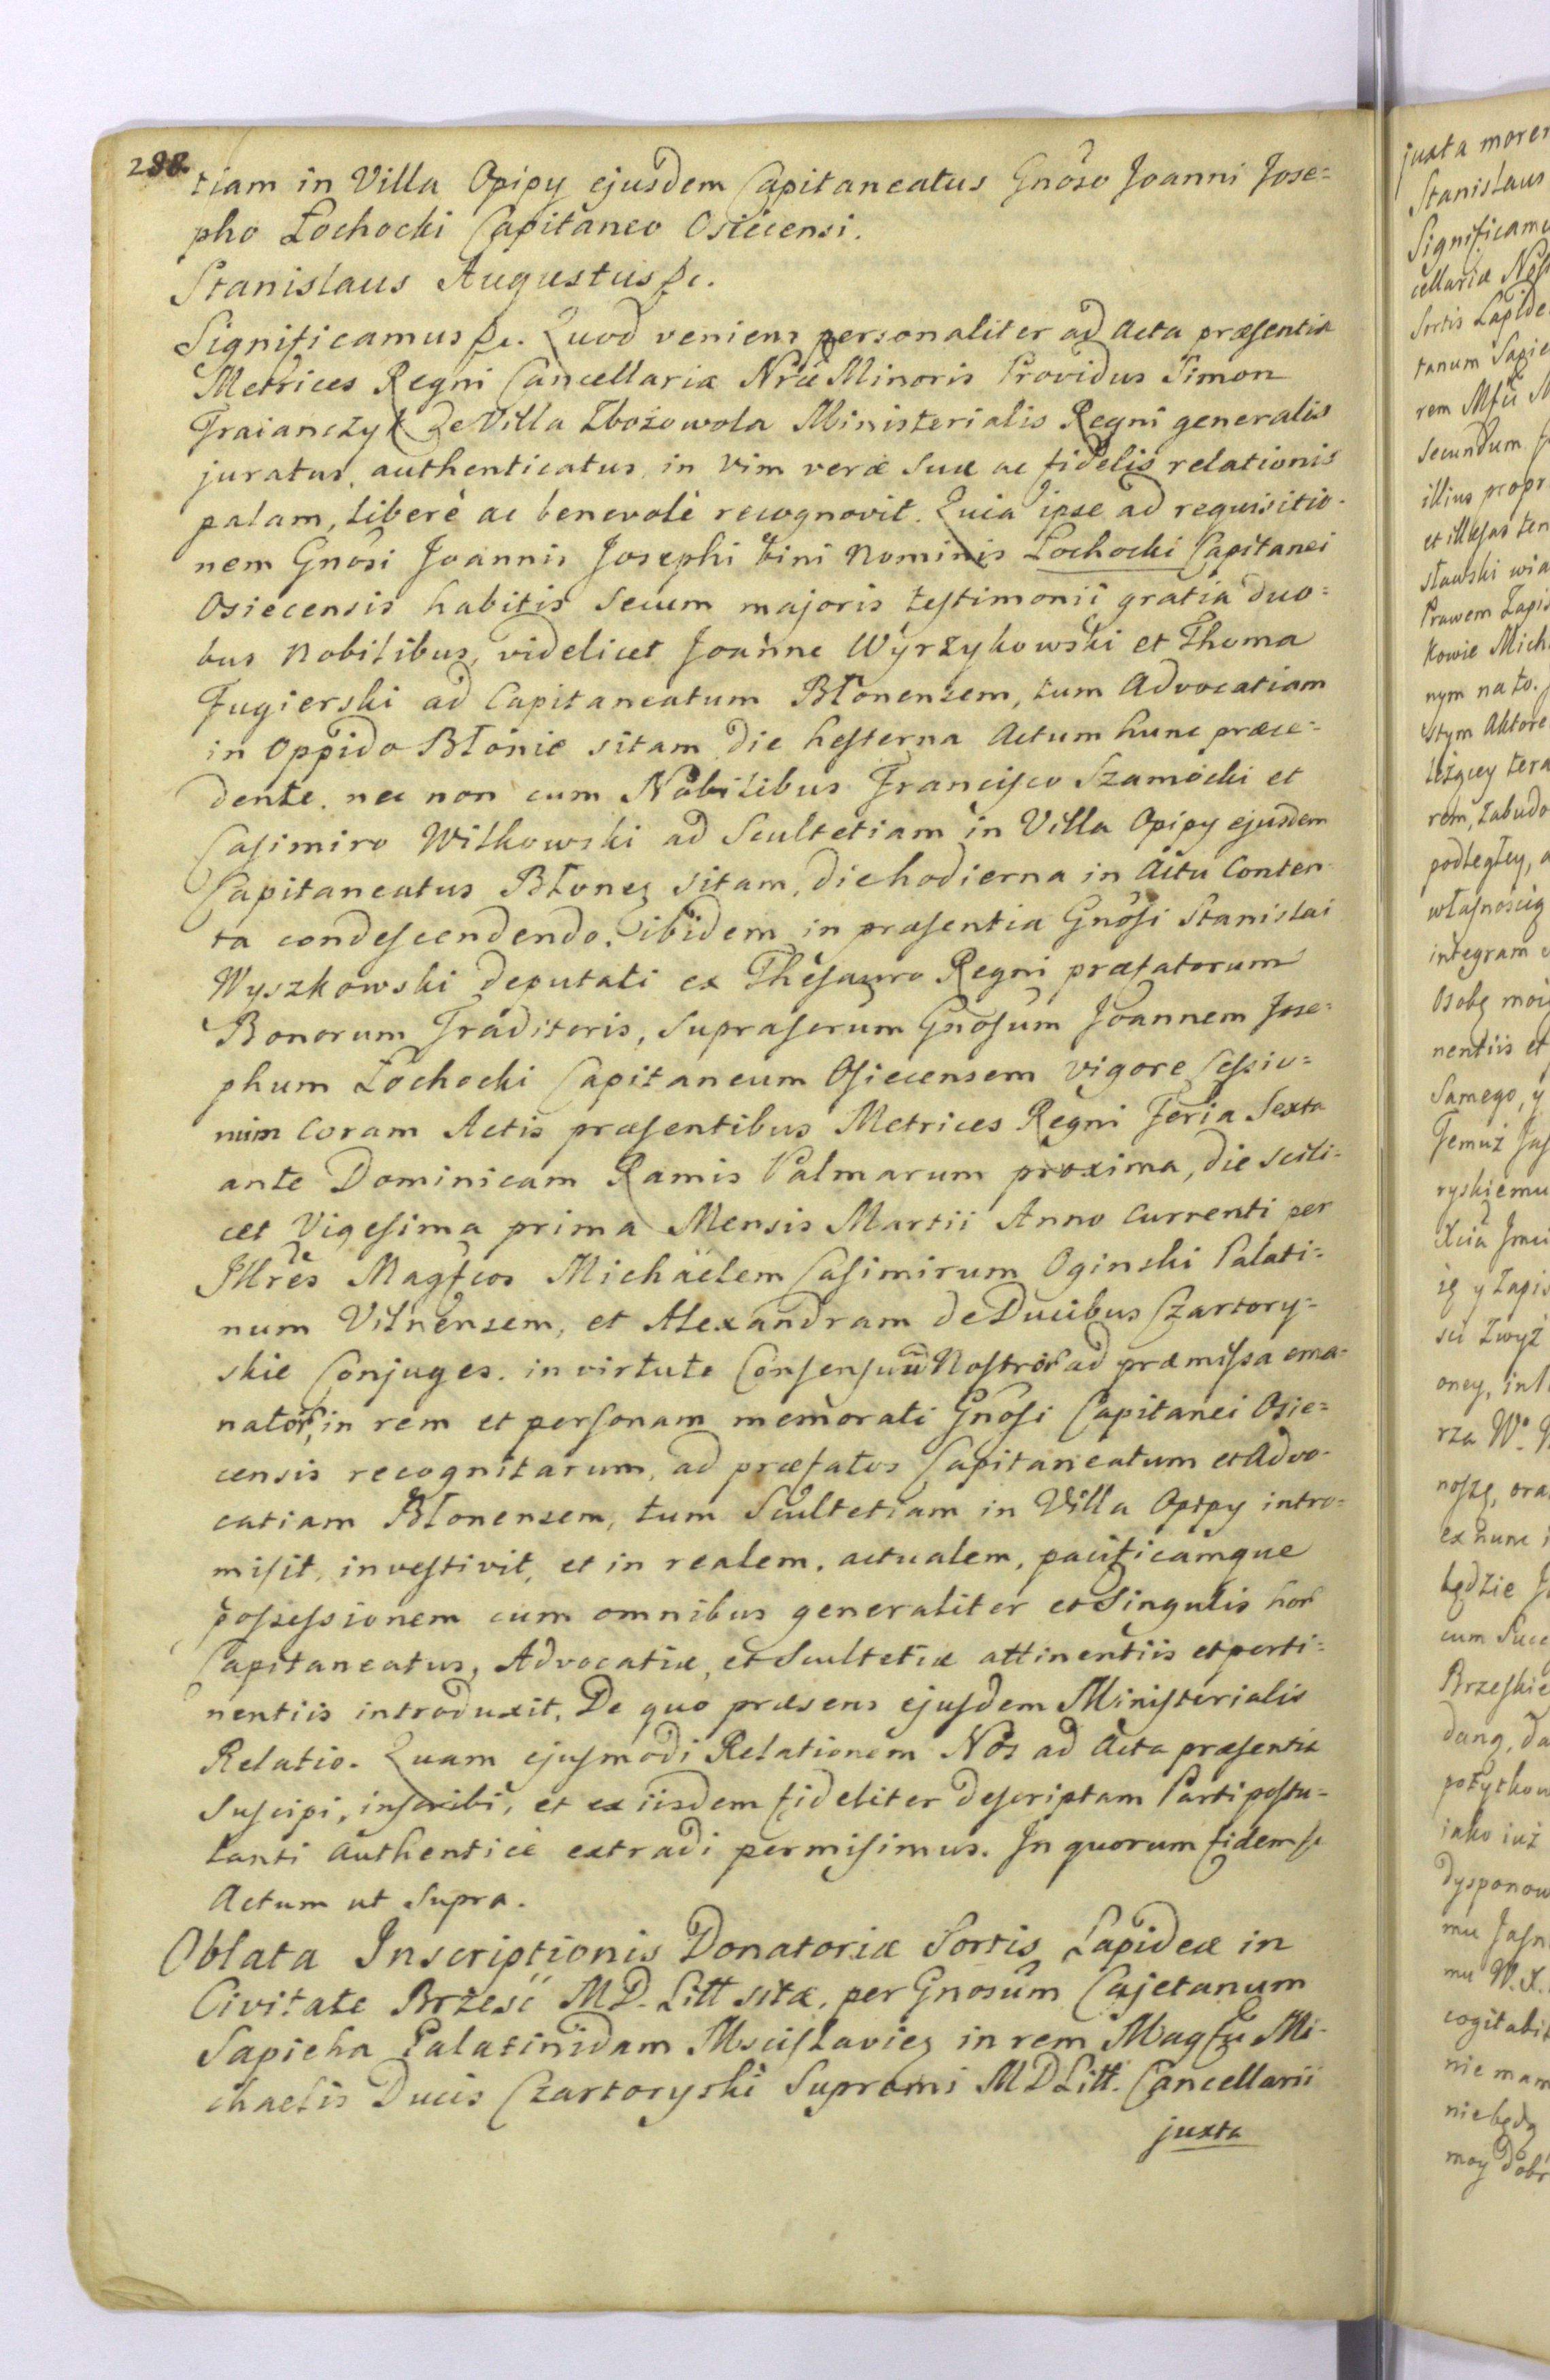 288
tiam in Villa Opipy ejusdem Capitaneatus Gnoso Joanni Jose=
pho Łochocki Capitaneo Osiecensi.
Stanislaus Augustus &c.
Significamus &c. Quod veniens personaliter ad Acta præsentia
Metrices Regni Cancellariæ Nræ Minoris Providus Simon
Traianczyk de Villa Zbożowola Ministerialis Regni generalis
juratus, authenticatus, in vim veræ suæ ac fidelis relationis
palam, liberè ac benevolè recognovit. Quia ipse ad requisitio-
nem Gnosi Joannis Josephi bini Nominis Łochocki Capitanei
Osiecensis habitis secum majoris testimonii gratia duo=
bus Nobilibus, videlicet Joanne Wyrzykowski et Thoma
Fugierski ad Capitaneatum Błonensem, tum Advocatiam
in Oppido Błonie sitam die hesterna Actum hunc præce=
dente, nec non cum Nobilibus Francisco Szamocki et
Casimiro Witkowski ad Scultetiam in Villa Opipy ejusdem
Capitaneatus Błonez sitam, die hodierna in Actu Conten-
ta condescendendo, ibidem in præsentia Gnosi Stanislai
Wyszkowski deputati ex Thesauro Regni præfatorum
Bonorum Traditoris, suprascrum Gnosum Joannem Jose=
phum Łochocki Capitaneum Osiecensem vigore Cessio=
num coram Actis præsentibus Metrices Regni Feria Sexta
ante Dominicam Ramis Palmarum proxima, die scili=
cet Vigesima prima Mensis Martii Anno Currenti per
Illres Magfcos Michäelem Casimirum Oginski Palati=
num Vilnensem, et Alexandram de Ducibus Czartory=
skie Conjuges, in virtute Consensuũ Nostror ad præmissa ema=
nator, in rem et personam memorati Gnosi Capitanei Osie=
censis recognitarum, ad præfatos Capitaneatum et Advo-
catiam Błonensem, tum Scultetiam in Villa Opipy intro=
misit, investivit, et in realem, actualem, pacificamque
possessionem cum omnibus generaliter et Singulis hor
Capitaneatus, Advocatiæ, et Scultetiæ attinentiis et perti=
nentiis introduxit, De quo præsens ejusdem Ministerialis
Relatio. Quam ejusmodi Relationem Nos ad Acta præsentia
suscipi, inscribi, et ex iisdem fideliter descriptam Parti postu=
lanti Authenticè extradi permisimus. In quorum fidem &c
Actum ut Supra.
Oblata Inscriptionis Donatoriæ Sortis Lapideæ in
Civitate Brześć M.D. Litt sitæ, per Gnosum Cajetanum
Sapieha Palatinidam Mscislaviez in rem Magfci Mi-
chaelis Ducis Czartoryski Supremi M D Litt. Cancellarii
juxta
juxta morem
Stanislaus
Significamu
cellariæ
Sortis Lapide
tanum Sapie
rem
secundum
illius propr
sławski
Prawem Zapis
kowie Mich
nym na to.
Aktore
podległey, a
własnością
integram
Osobę moią
nentiis et
Samego, y
ryskiemu
oney,
ex nunc
będzie
cum Succ
dysponow
mu
cogitabit
nie mam
nie będą
moy